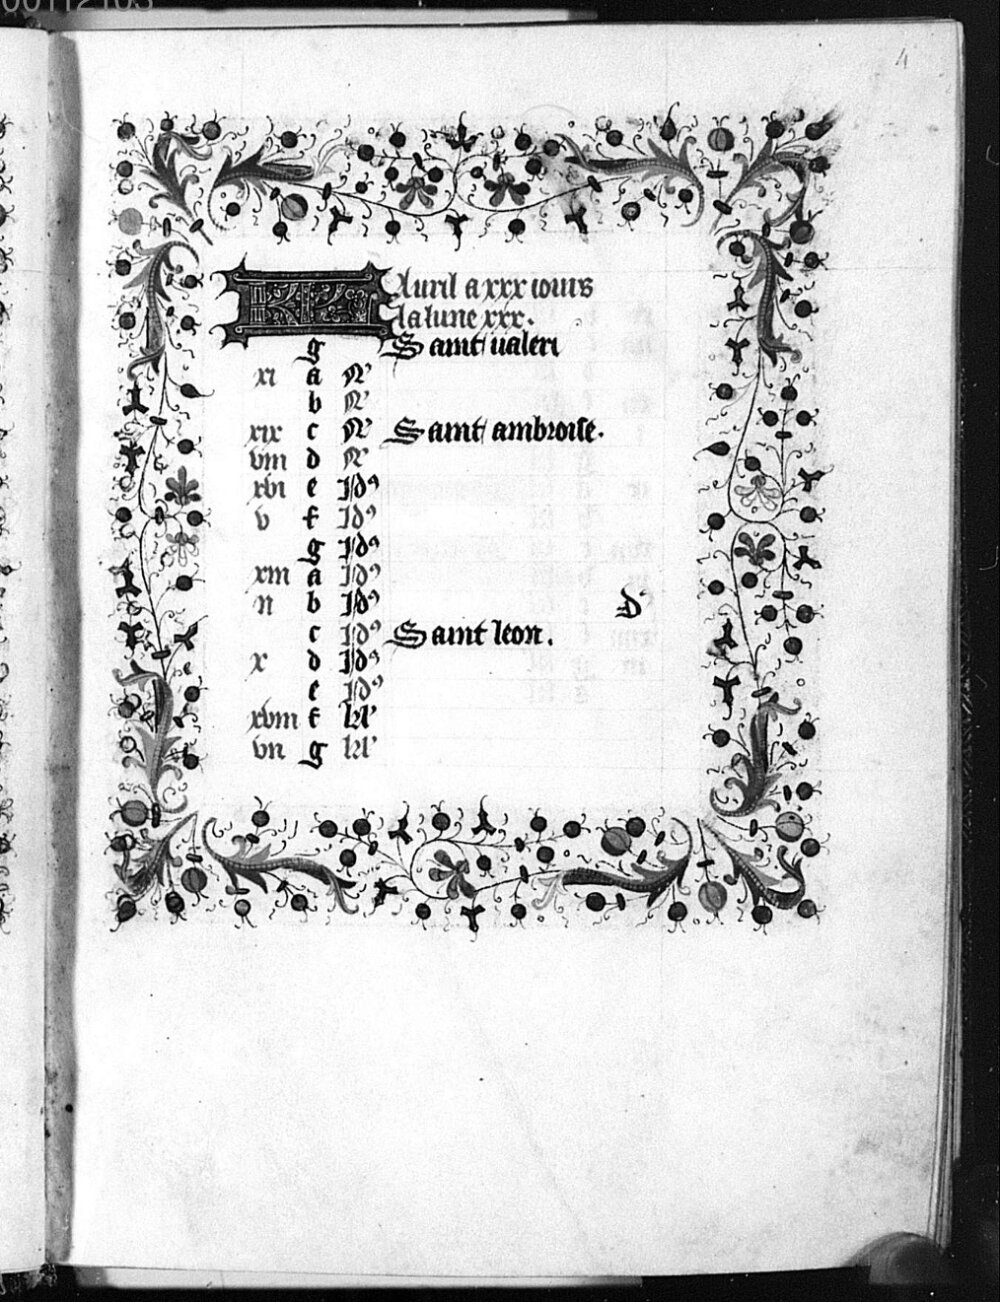 4
KL Auril a xxx iours
la lune xxx.
g Saint ualeri
xi a N'
b N'
xix c N' Saint ambroise.
viii d N'
xvi e Id9
v f Id9
g Id9
xiii a Id9
ii b Id9 D'
c Id9 Saint leon.
x d Id9
e Id9
xviii f kl'
vii g kl'